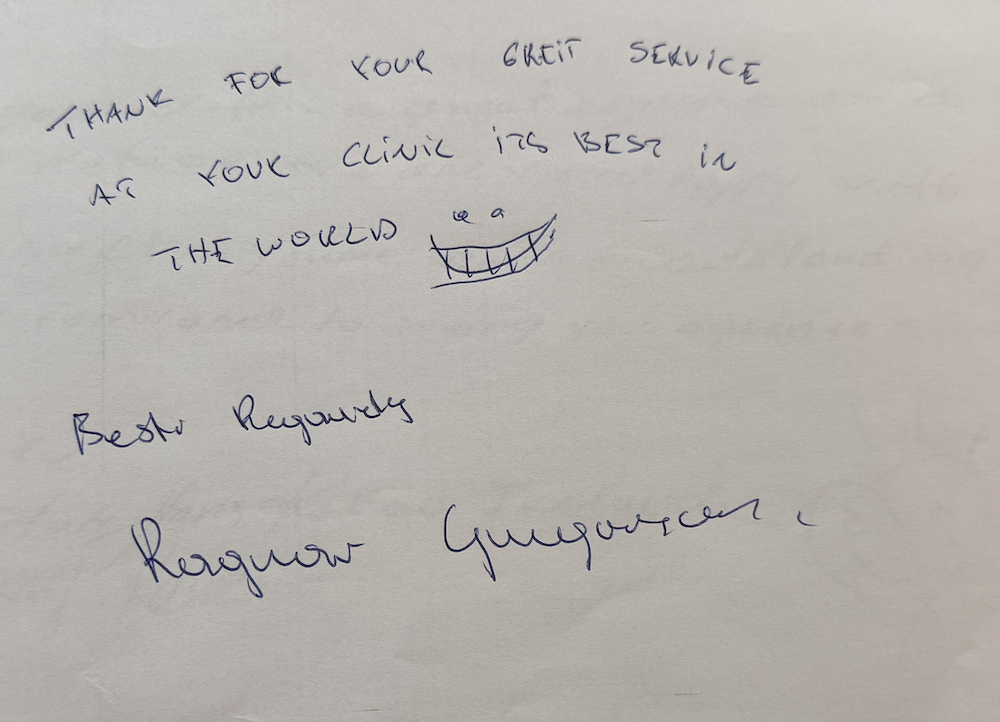 THANK FOR YOUR GREIT SERVICE
AT YOUR CLINIC ITS BEST IN
THE WORLD
Best Regards
Ragnar